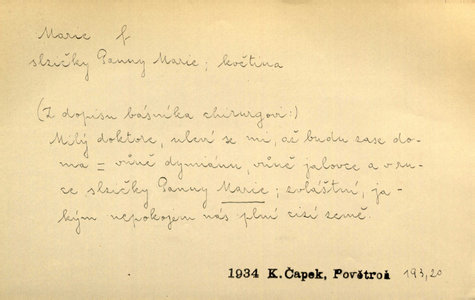 Marie f
slzičky Panny Marie; květina
(Z dopisu básníka chirurgovi:)
Milý doktore, uleví se mi, až budu zase do-
ma = vůně dymiánu, vůně jalovce a v ru-
ce slzičky Panny Marie; zvláštní, ja-
kým nepokojem nás plní cizí země.
1934 K.Čapek, Povětroň 193,20